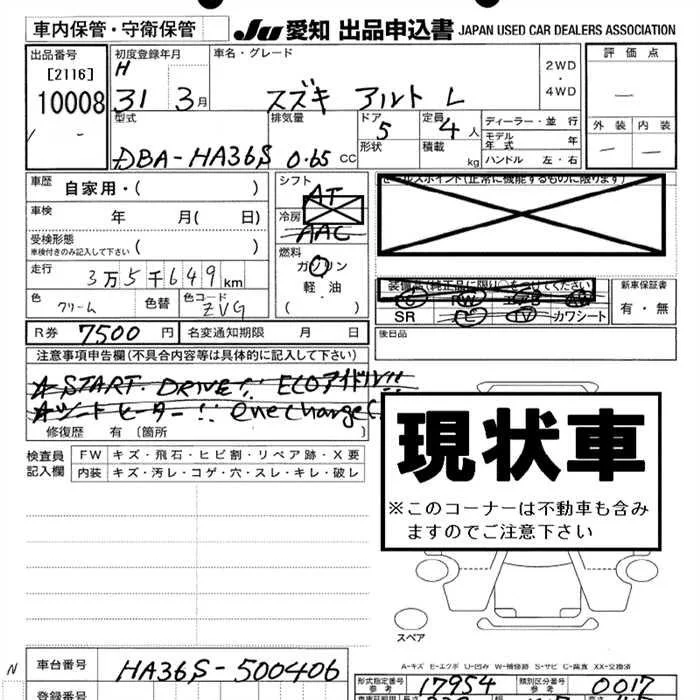 車内保管・守衛保管
JU 愛知 出品申込書 JAPAN USED CAR DEALERS ASSOCIATION
出品番号
[2116]
10008
初度登録年月
H
31 3月
車名・グレード
スズキ アルト L
2WD
・
4WD
評価点
—
外装 内装
— —
型式
DBA-HA36S
排気量
0.65 CC
ドア
5
形状
定員
4人
積載
kg
ディーラー・並行
モデル年式 年
ハンドル 左・右
車歴 自家用・( )
車検 年 月( 日)
受検形態
車検付きのみ記入して下さい ( )
走行 3万5千649km
色
クリーム
色替
色コード
ZVG
シフト
AT
冷房
AAC
燃料
ガソリン
軽・油
( )
セールスポイント(正常に機能するものに限ります)
装備品(純正品に限り○をつけてください)
SR
TV
カワシート
新車保証書
有・無
R券 7500円
名変通知期限 月 日
後日品
注意事項申告欄(不具合内容等は具体的に記入して下さい)
☆START. DRIVE!! ECOアイドル!!
☆シートヒーター!! enecharge
修復歴 有〔箇所 〕
検査員記入欄
FW キズ・飛石・ヒビ割・リペア跡・X要
内装 キズ・汚レ・コゲ・穴・スレ・キレ・破レ
現状車
※このコーナーは不動車も含みますのでご注意下さい
スペア
A-キズ E-エクボ U-凹み W-補修跡 S-サビ C-腐食 XX-交換済
N
車台番号 HA36S-500406
登録番号
形式指定番号
参考
17954
類別区分番号
参考
0017